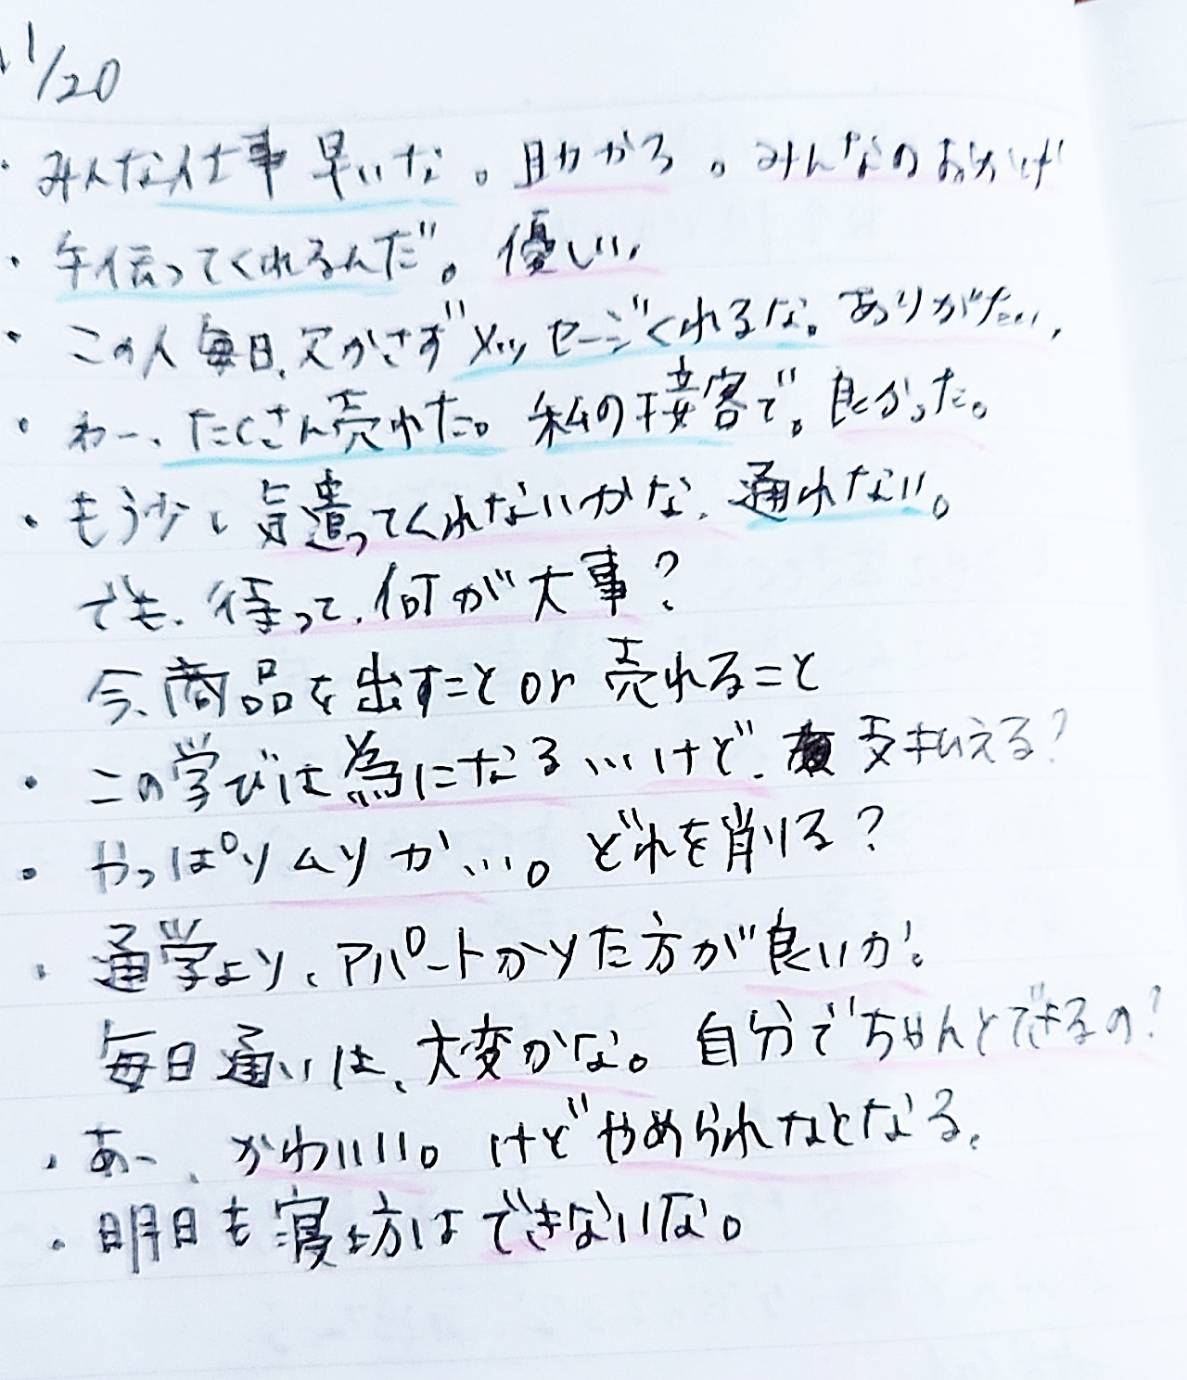 11/20
・みんな仕事早いな。助かる。みんなのおかげ
・手伝ってくれるんだ。優しい。
・この人毎日、欠かさずメッセージくれるな。ありがたい。
・わー、たくさん売れた。私の接客で。良かった。
・もう少し気遣ってくれないかな、通れない。
でも、待って、何が大事？
今、商品を出すこと or 売れること
・この学びは為になる…けど、支払える？
・やっぱりムリか…。どれを削る？
・通学より、アパートかりた方が良いか。
毎日通いは、大変かな。自分でちゃんとできるの？
・あー、かわいい。けどやめられなとなる。
・明日も寝坊はできないな。